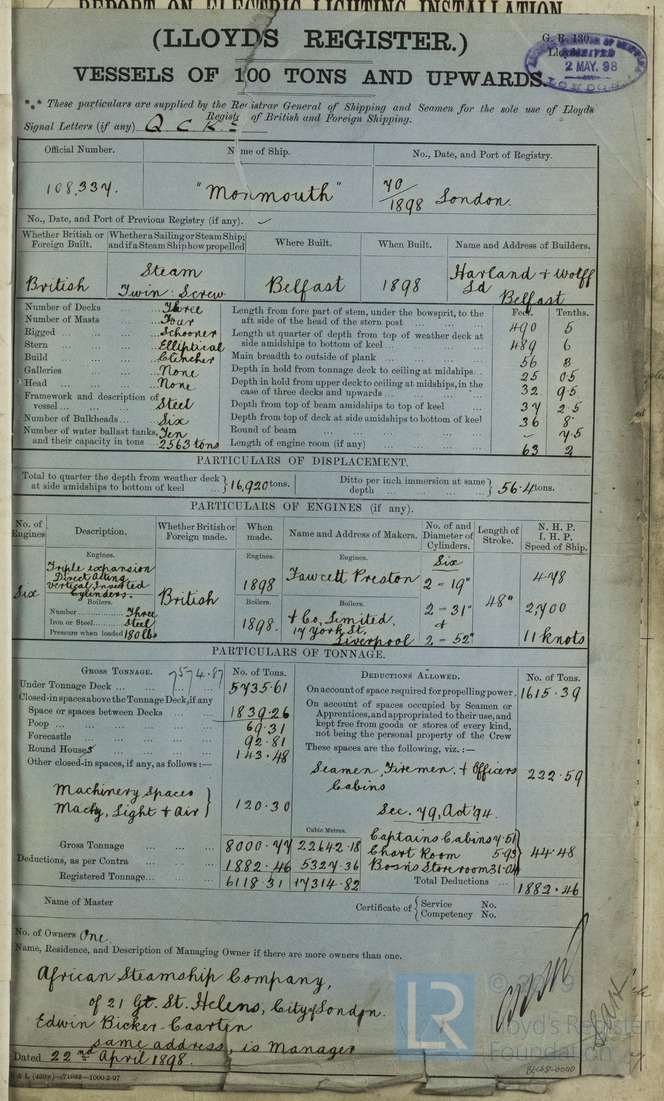 REPORT ON ELECTRIC LIGHTING INSTALLATION
(LLOYDS REGISTER.)
G. R. 130.
Lloyds.
RECEIVED
2 MAY. 98
LONDON
VESSELS OF 100 TONS AND UPWARDS.
*** These particulars are supplied by the Registrar General of Shipping and Seamen for the sole use of Lloyds
Register of British and Foreign Shipping.
Signal Letters (if any)
Official Number. Name of Ship. No., Date, and Port of Registry.
108,337. "Monmouth" 70/1898 London.
No., Date, and Port of Previous Registry (if any).
Whether British or Foreign Built. Whether a Sailing or Steam Ship; and if a Steam Ship how propelled Where Built. When Built. Name and Address of Builders.
British Steam Twin: Screw Belfast 1898 Harland + Wolff Ld Belfast
Feet. Tenths.
Number of Decks ... Three
Number of Masts ... Four
Rigged ... Schooner
Stern ... Elliptical
Build ... Clencher
Galleries ... None
Head ... None
Framework and description of vessel ... Steel
Number of Bulkheads ... Six
Number of water ballast tanks, and their capacity in tons ... Ten 2563 tons
Length from fore part of stem, under the bowsprit, to the aft side of the head of the stern post ... 490 5
Length at quarter of depth from top of weather deck at side amidships to bottom of keel ... 489 6
Main breadth to outside of plank ... 56 3
Depth in hold from tonnage deck to ceiling at midships ... 25 05
Depth in hold from upper deck to ceiling at midships, in the case of three decks and upwards ... 32 95
Depth from top of beam amidships to top of keel ... 37 25
Depth from top of deck at side amidships to bottom of keel 36 8
Round of beam ... - 7.5
Length of engine room (if any) ... 63 2
PARTICULARS OF DISPLACEMENT.
Total to quarter the depth from weather deck at side amidships to bottom of keel ... } 16,920 tons. Ditto per inch immersion at same depth ... } 56.4 tons.
PARTICULARS OF ENGINES (if any).
No. of Engines Description. Whether British or Foreign made. When made. Name and Address of Makers. No. of and Diameter of Cylinders. Length of Stroke. N. H. P. I. H. P. Speed of Ship.
Engines. Engines. Engines. Six
Triple expansion Direct Acting Vertical Inverted Cylinders. 1898 Fawcett Preston 2 - 19" 478
Six British 48"
Boilers. Boilers. Boilers.
Number ... Three 2 - 31" 2,700
Iron or Steel ... Steel 1898. + Co, Limited. +
Pressure when loaded 180 lbs 17 York St, Liverpool 2 - 52" 11 knots
PARTICULARS OF TONNAGE.
GROSS TONNAGE. 7574.87 No. of Tons. DEDUCTIONS ALLOWED. No. of Tons.
Under Tonnage Deck ... 5735.61
Closed-in spaces above the Tonnage Deck, if any
Space or spaces between Decks ... 1839.26
Poop ... 69.31
Forecastle ... 92.81
Round Houses ... 143.48
Other closed-in spaces, if any, as follows:—
Machinery Spaces
Machy, Light + Air } 120.30
On account of space required for propelling power. 1615.39
On account of spaces occupied by Seamen or Apprentices, and appropriated to their use, and kept free from goods or stores of every kind, not being the personal property of the Crew
These spaces are the following, viz.:—
Seamen, Firemen, + Officers Cabins 222.59
Sec. 79, Act '94.
Cubic Metres.
Captains Cabins 7.51
Chart Room 5.93
Bosns Storeroom 31.04 } 44.48
Gross Tonnage ... 8000.77 22642.18
Deductions, as per Contra ... 1882.46 5327.36
Registered Tonnage ... 6118.31 17314.82
Total Deductions ... 1882.46
Name of Master Certificate of { Service No. Competency No.
No. of Owners One.
Name, Residence, and Description of Managing Owner if there are more owners than one.
African Steamship Company,
of 21 Gt. St. Helens, City of London.
Edwin Bicker-Caarten
same address, is Manager
Dated 22nd April 1898.
& L (469a)—71932—1000-2-97
LR
© 2019
Lloyd's Register
Foundation